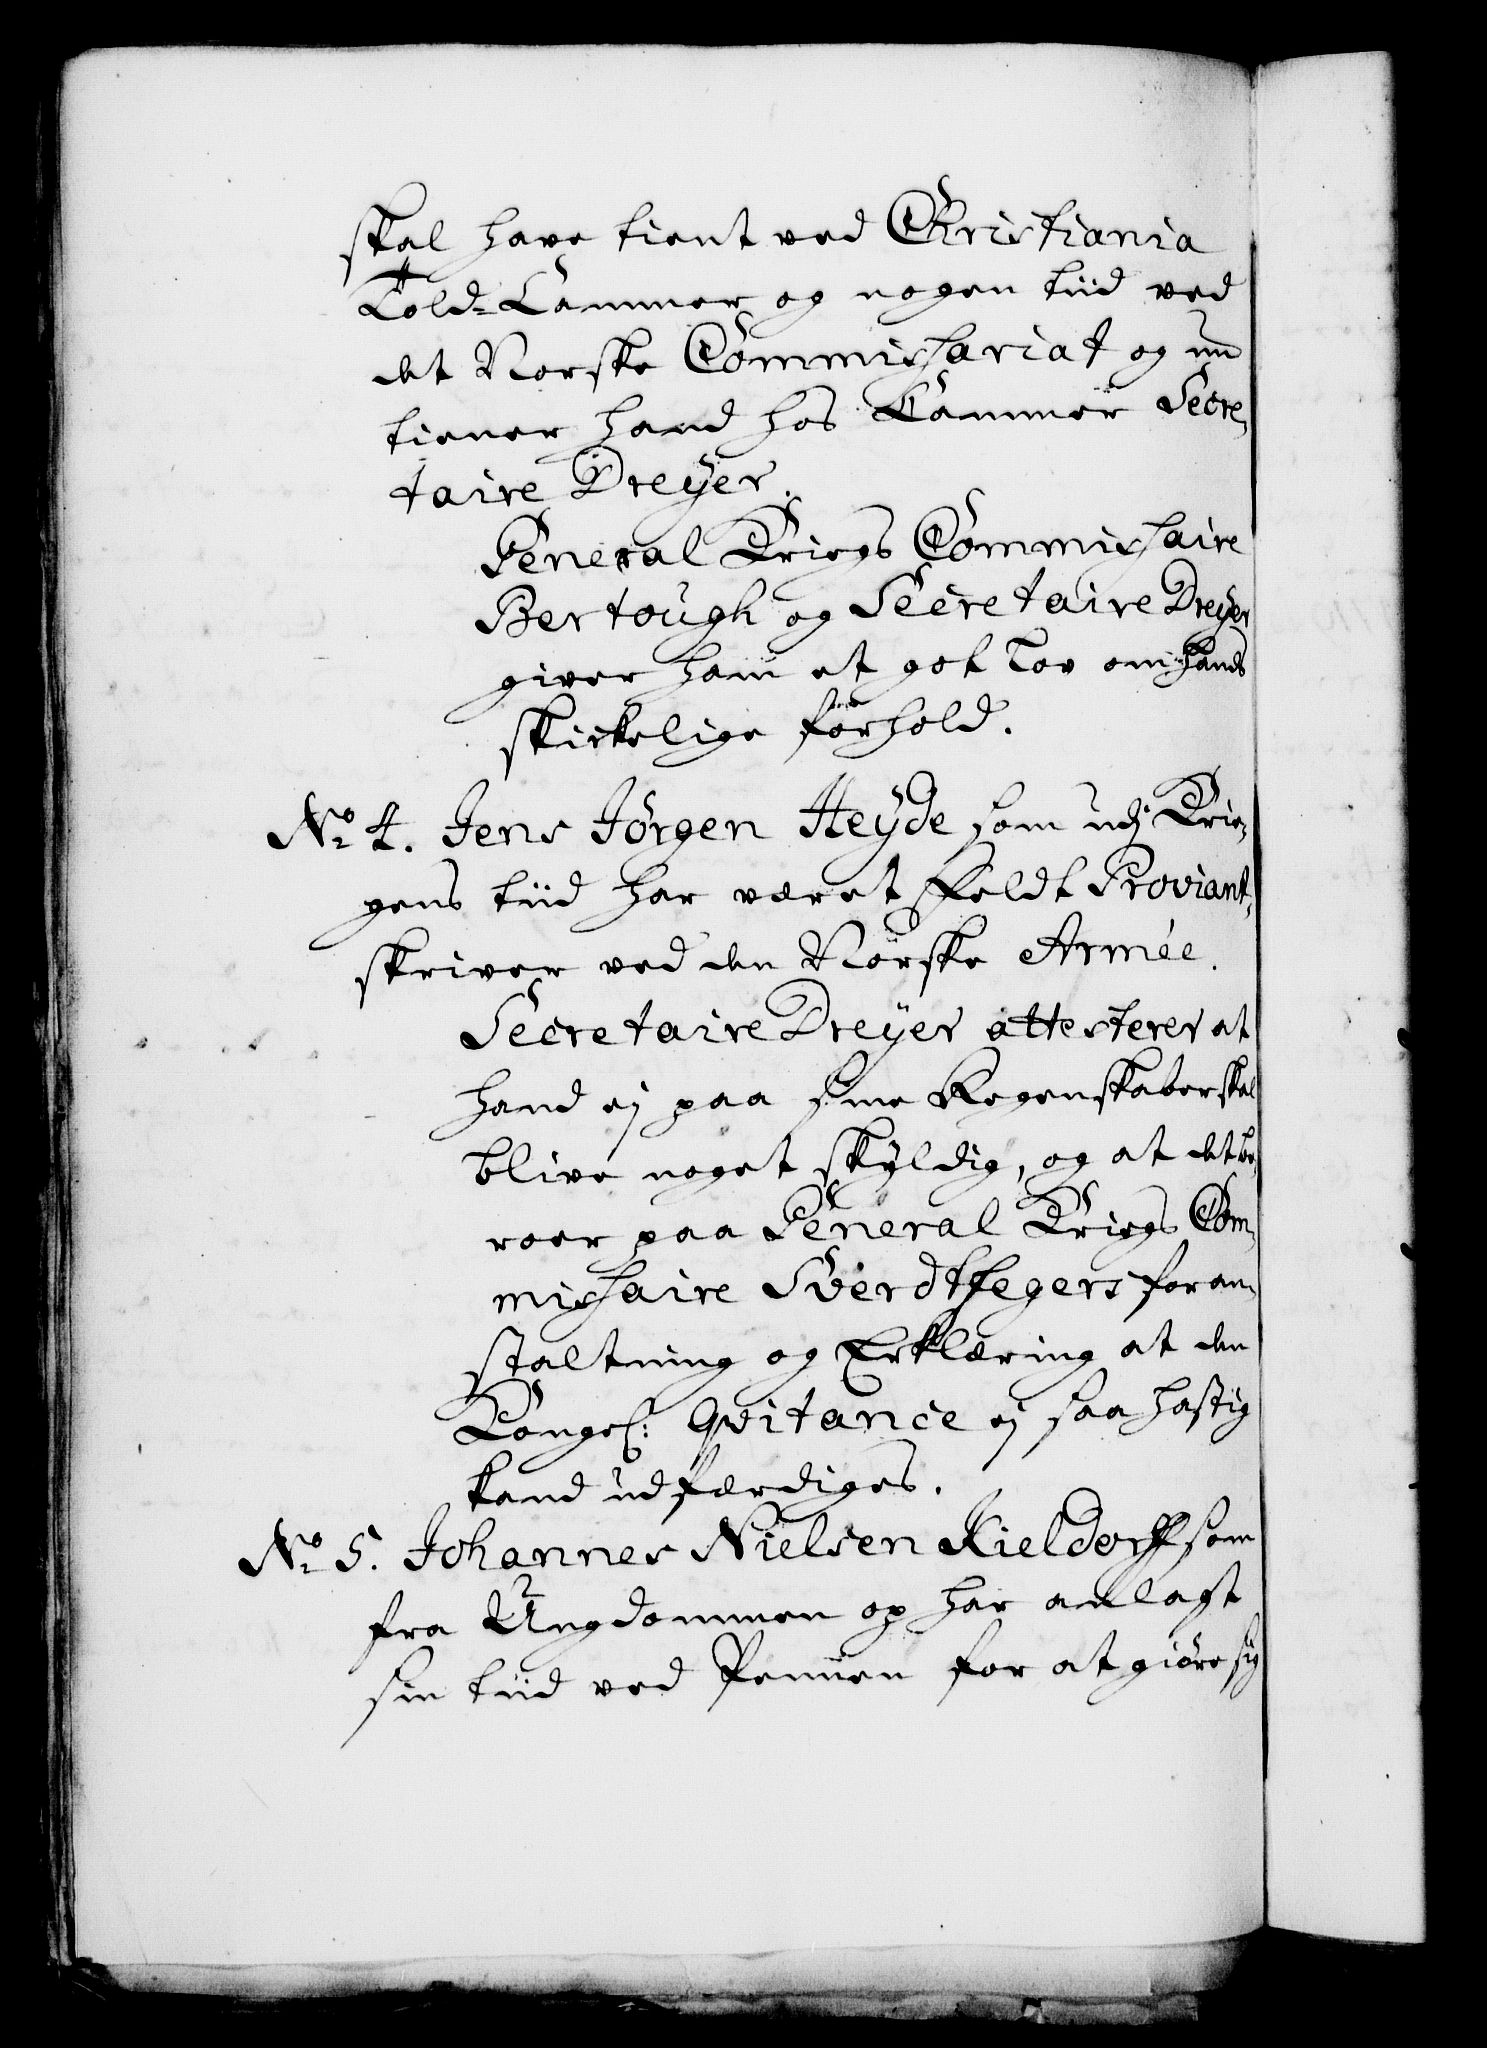 skal have tient ved Christiania
Told-Cammer og nogen tiid ved
det Norske Commishariat og nu
tiener hand hos Cammer Secre-
taire Dreÿer.
General Kriegs Commishaire
Bertough og Secretaire Dreÿer
giver ham et got Lov om hands
skickelige forhold.
No. 4. Jens Jørgen Heÿde som udj Krie-
gens tiid har været Feldt Proviant-
skriver ved den Norske Armée.
Secretaire Dreÿer attesterer at
hand ej paa sine Regenskaber skal
blive noget skyldig, og at det be-
roer paa General Kriegs Com-
mishaire Sverdtfegers foran-
staltning og Erklæring at den
Kongel: Qvitance ej saa hastig
kand udfærdiges.
No. 5. Johannes Nielsen Kieldorff som
fra Ungdommen op har anlagt
sin tiid ved Pennen for at giøre sig